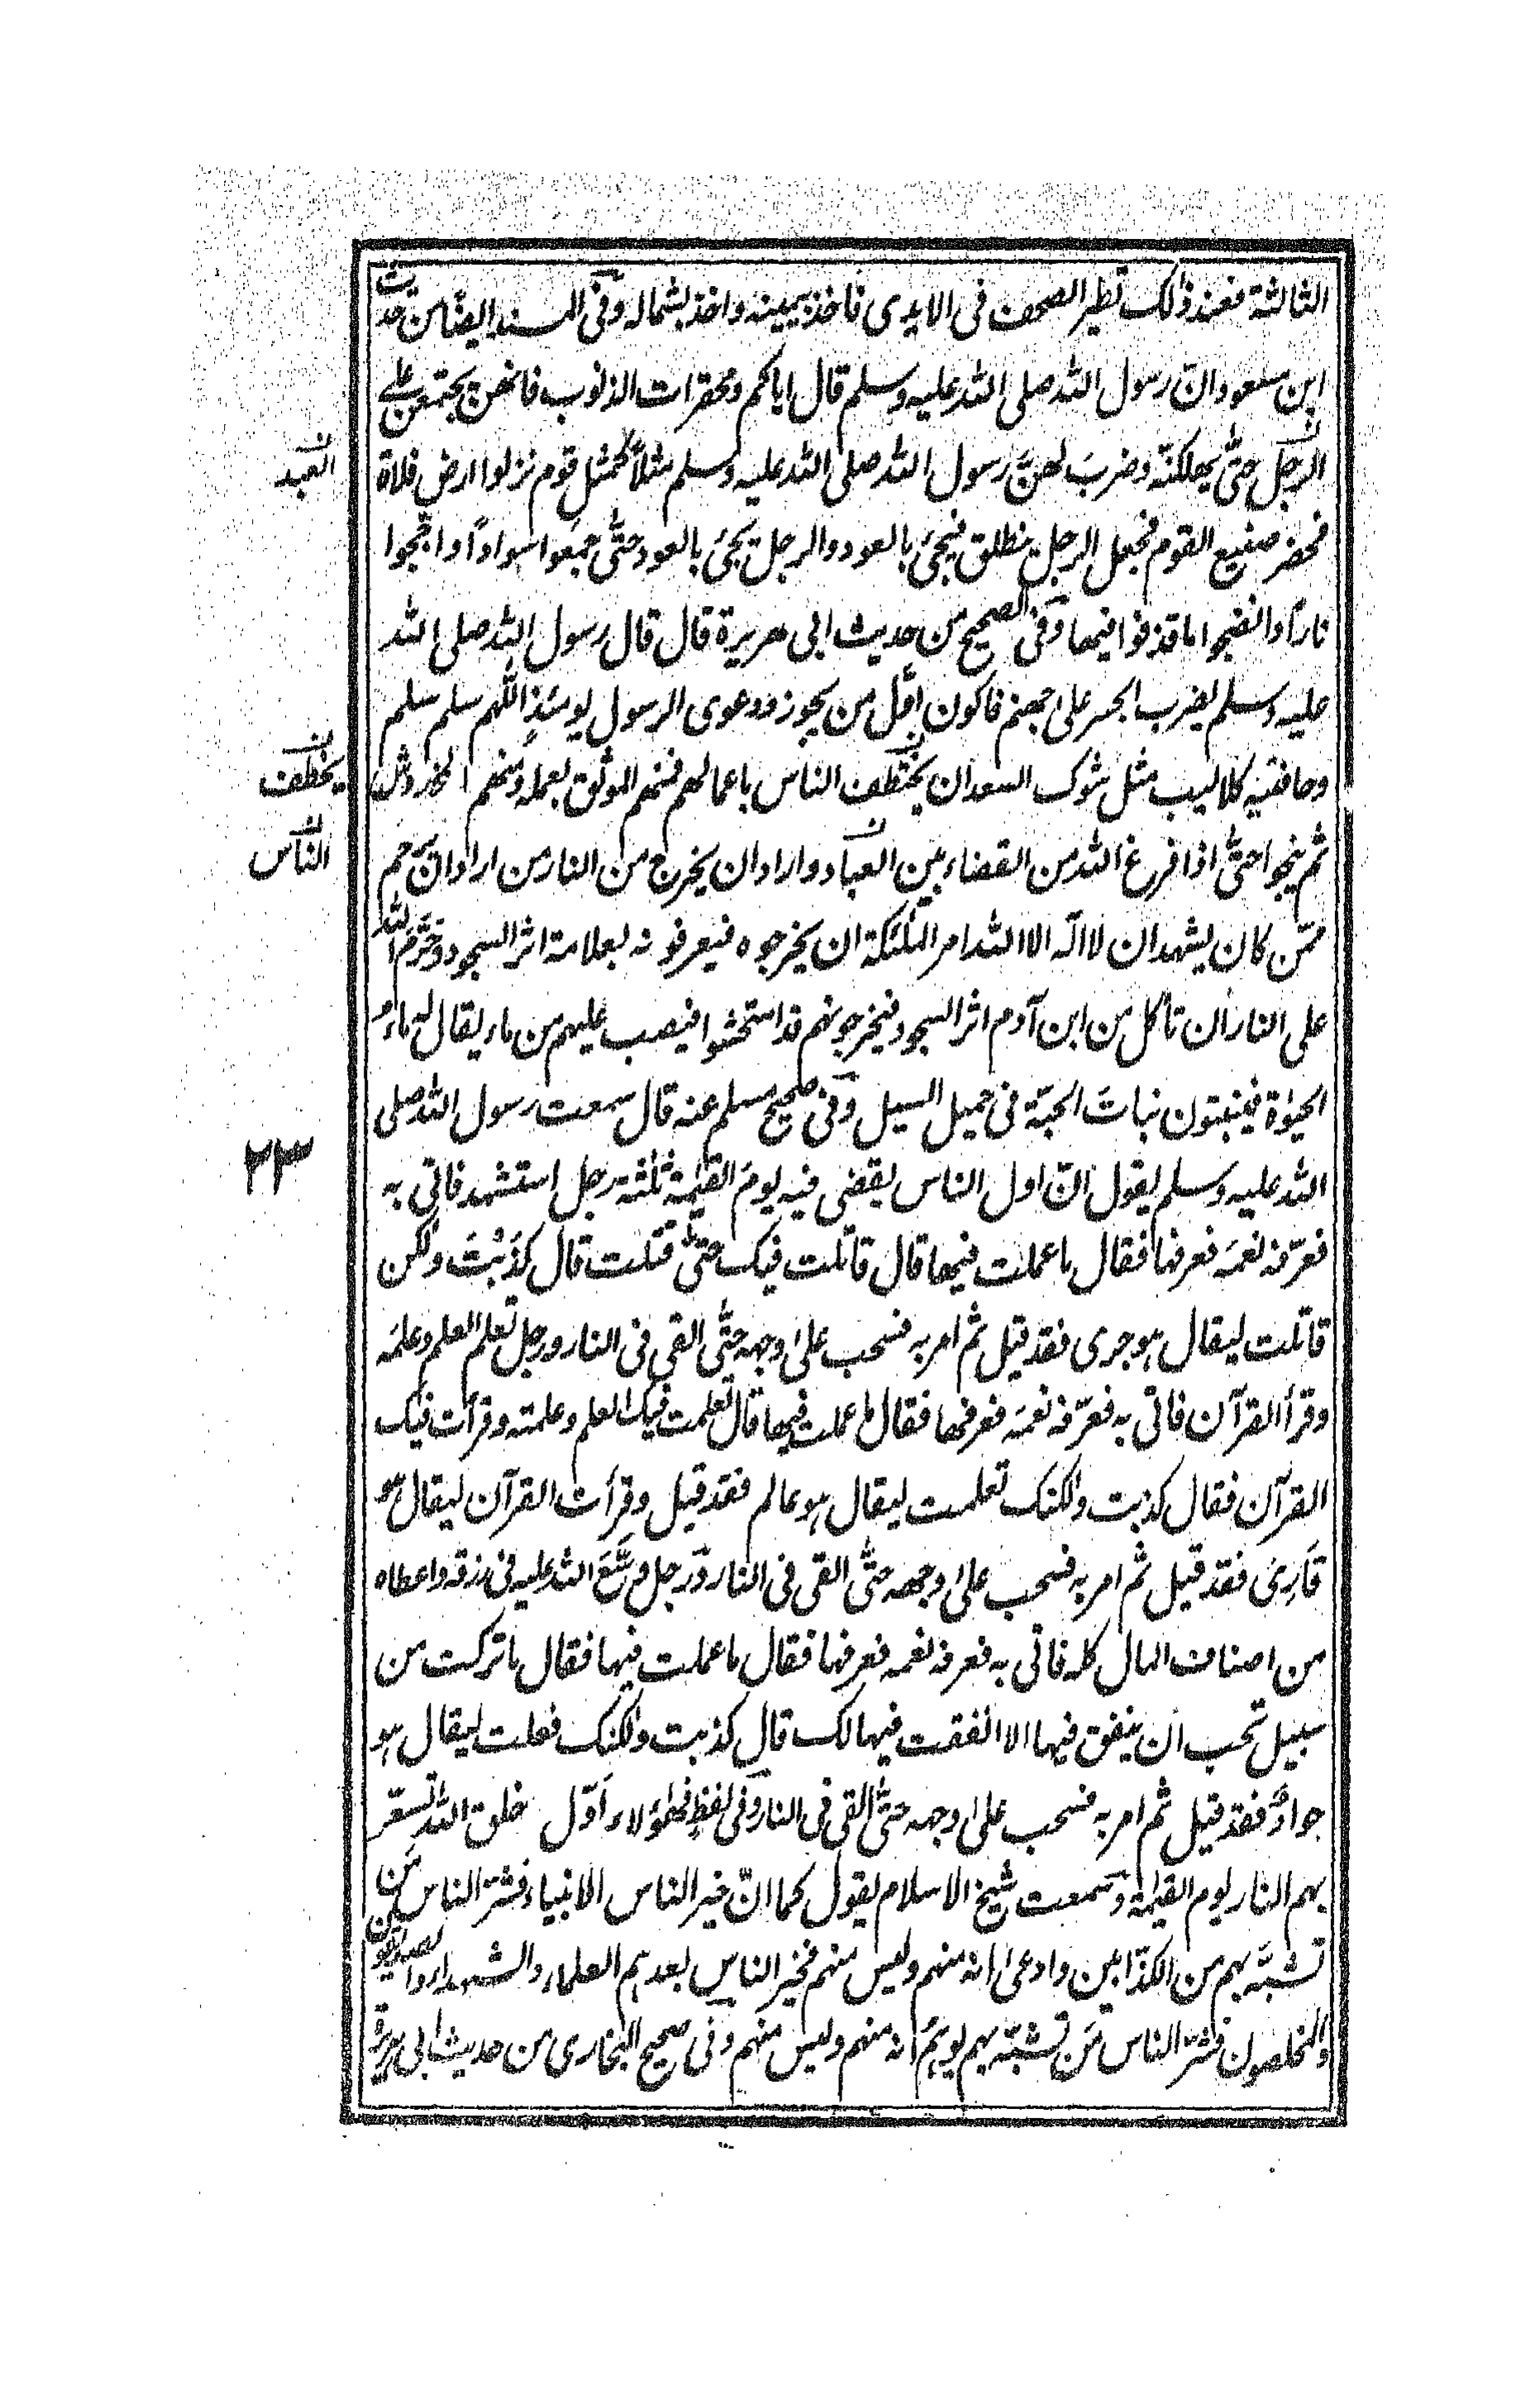 الثالثة فعند ذلك تطير الصحف فى الايدى فاخذ بيمينه واخذ بشماله وفى المسند ايضًا من حديث
ابن مسعود ان رسول الله صلى الله عليه وسلم قال اياكم ومحقرات الذنوب فانهن يجتمعن على
الرجل حتى يهلكنه وضرب لهن رسول الله صلى الله عليه وسلم مثلاً كمثل قوم نزلوا ارض فلاة
فحضر صنيع القوم فجعل الرجل ينطلق فيجئ بالعود والرجل يجئ بالعود حتى جمعوا سوادًا واججوا
نارًا وانضجوا ما قذفوا فيها وفى الصحيح من حديث ابى هريرة قال قال رسول الله صلى الله
عليه وسلم يضرب الجسر على جهنم فاكون اوّل من يجوز ودعوى الرسول يومئذٍ اللهم سلم سلم
وحافتيه كلاليب مثل شوك السعدان يختطف الناس باعمالهم فمنهم الموثق بعمله ومنهم المخردل
ثم ينجوا حتى اذا فرغ الله من القضاء بين العباد واراد ان يخرج من النار من اراد ان يرحم
ممّن كان يشهد ان لا اله الا الله امر الملٰئكة ان يخرجوه فيعرفونه بعلامة اثر السجود وحرّم الله
على النار ان تأكل من ابن آدم اثر السجود فيخرجونهم قد امتحشوا فيصب عليهم من ماء يقال له ماء
الحيٰوة فينبتون نباتَ الحبّة فى حميل السيل وفى صحيح مسلم عنه قال سمعت رسول الله صلى
الله عليه وسلم يقول انّ اول الناس يقضى فيه يومَ القيٰمة ثلٰثة رجل استشهد فاتى به
فعرّفه نعمَه فعرفها فقال ما عملت فيها قال قاتلت فيك حتى قتلت قال كذَبْتَ ولكن
قاتلت ليقال هو جرى فقد قيل ثم امر به فسحب على وجهه حتى القى فى النار ورجل تعلم العلم وعلمَه
وقرأ القرآن فاتى به فعرّفه نعمَه فعرفها فقال ما عملت فيها قال تعلمت فيك العلم وعلمته وقرأت فيك
القرآن فقال كذبت ولكنك تعلمت ليقال هو عالم فقد قيل وقرأت القرآن ليقال هو
قارئ فقد قيل ثم امر به فسحب على وجهه حتى القى فى النار ورجل وسّعَ الله عليه فى رزقه واعطاه
من اصناف المال كله فاتى به فعرفه نعمه فعرفها فقال ما عملت فيها فقال ما تركت من
سبيل تحب ان ينفق فيها الا انفقت فيها لك قال كذبت ولكنك فعلت ليقال هو
جوادٌ فقد قيل ثم امر به فسحب على وجهه حتى القى فى النار وفى لفظٍ فهٰؤلاء اوّل خلق الله تسعّر
بهم النار يوم القيٰمة وسمعت شيخ الاسلام يقول كما انّ خير الناس الانبياء فشرّ الناس مَن
تشبّه بهم من الكذّابين وادعى انه منهم وليس منهم فخير الناس بعدهم العلماء والشهداء والصديقون
والمخلصون فشرّ الناس مَن تشبّه بهم يوهِمُ انه منهم وليس منهم وفى صحيح البخارى من حديث ابى هريرة
العبد
يخطف
الناس
٢٣